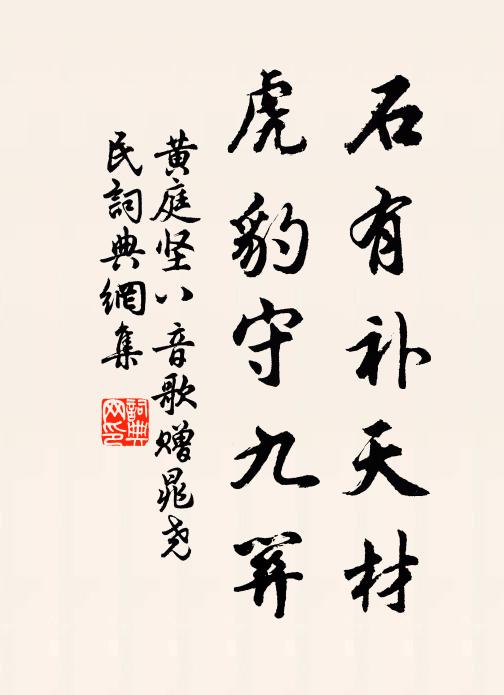 石有补天材
虎豹守九關
黄庭坚八音歌赠晁尧
民詞典網集
詞典
网印